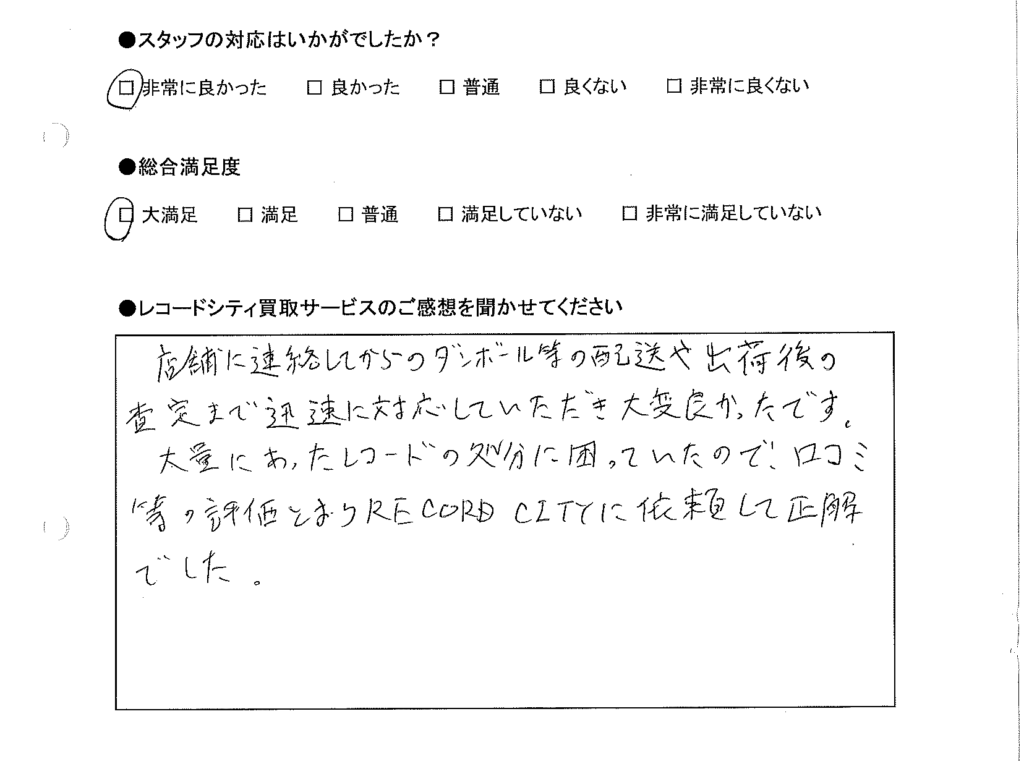 ●スタッフの対応はいかがでしたか？
□ 非常に良かった □ 良かった □ 普通 □ 良くない □ 非常に良くない
●総合満足度
□ 大満足 □ 満足 □ 普通 □ 満足していない □ 非常に満足していない
●レコードシティ買取サービスのご感想を聞かせてください
店舗に連絡してからのダンボール等の配送や出荷後の
査定まで迅速に対応していただき大変良かったです。
大量にあったレコードの処分に困っていたので、口コミ
等の評価どおりRECORD CITYに依頼して正解
でした。